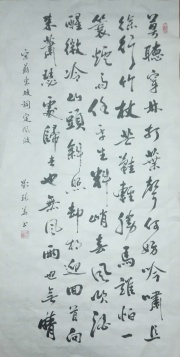 莫聽穿林打葉聲何妨吟嘯且
徐行竹杖芒鞋輕勝馬誰怕一
蓑煙雨任平生料峭春風吹酒
醒微冷山頭斜照却相迎回首向
来蕭瑟處歸去也無風雨也無晴
宋蘇東坡詞定風波
書